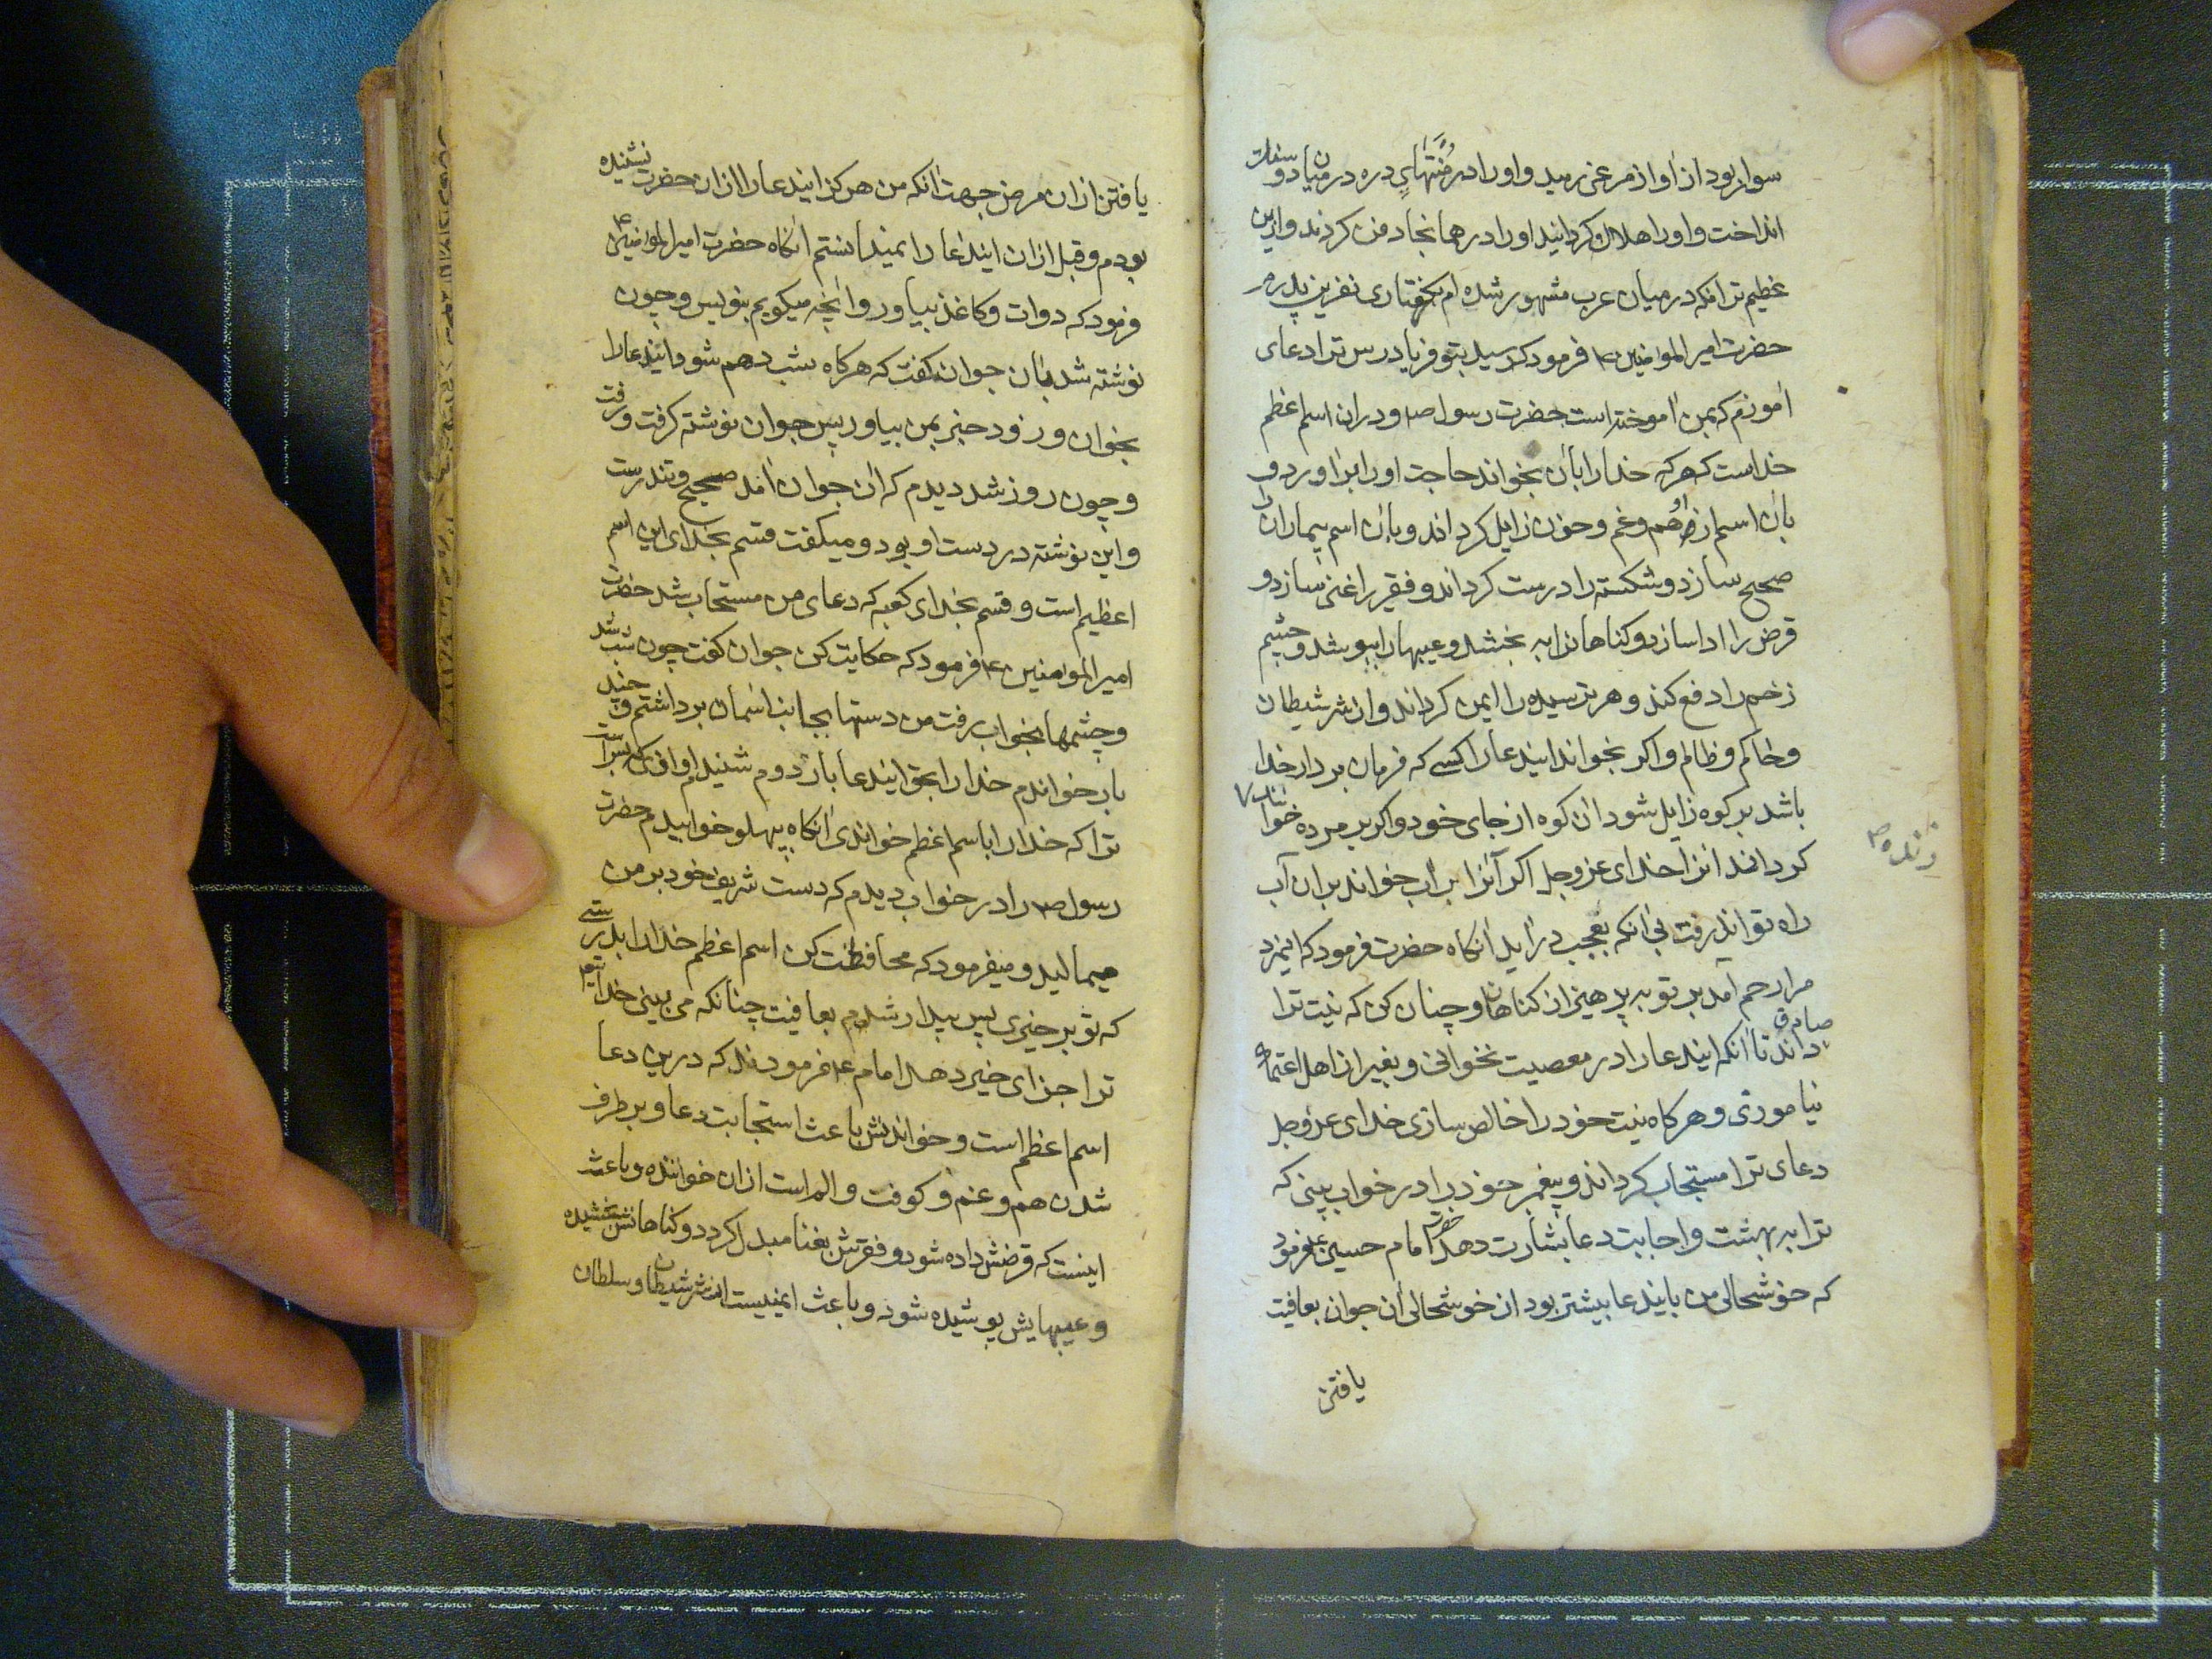 سوار بود از آواز مرغی رمید و او را در منتهای دره در میان دو سنک
انداخت و او را هلاک کردانید او را در همانجا دفن کردند و ازین
عظیم تر آنکه در میان عرب مشهور شده ام بکرفتاری نفرین پدرم
حضرت امیر المؤمنین ع فرمود که رسید بتو فریادرس ترا دعای
آموزم که بمن آموخته است حضرت رسول ص و در آن اسم اعظم
خداست که هر که خدا را بآن بخواند حاجت او را برآورد و
بآن اسم از او هم و غم و حزن زایل کرداند و بآن اسم بیماران را
صحیح سازد و شکسته را درست کرداند و فقیر را غنی سازد و
قرض را ادا سازد و کناهانرا به بخشد و عیبها را بپوشد و چشم
زخم را دفع کند و هر ترسیده را ایمن کرداند و از شر شیطان
و حاکم و ظالم و اکر بخواند ایندعا را کسی که فرمان بردار خدا
باشد بر کوه زایل شود آن کوه از جای خود و اکر بر مرده خوانند
زنده ص
کرداند آنرا خدای عز و جل اکر آنرا بر آب خواند بر آن آب
راه تواند رفت بی آنکه تعجب درآید آنکاه حضرت فرمود که ایمرد
مرا رحم آمد بر تو بپرهیز از کناهان و چنان کن که نیت ترا صادق
داند تا آنکه ایندعا را در معصیت نخوانی و بغیر از اهل اعتماد
نیاموزی و هر کاه نیت خود را خالص سازی خدای عز و جل
دعای ترا مستجاب کرداند و پیغمبر خود را در خواب بینی که
ترا به بهشت و اجابت دعا بشارت دهد حضرت امام حسین ع فرمود
که خوشحالی من بایندعا بیشتر بود از خوشحالی آن جوان بعافیت
یافتن
یافتن از آن مرض جهت آنکه من هرکز ایندعا را از آن حضرت نشنیده
بودم و قبل از آن ایندعا را نمیدانستم آنکاه حضرت امیر المؤمنین ع
فرمود که دوات و کاغذ بیاور و آنچه میکویم بنویس و چون
نوشته شد بآن جوان کفت که هرکاه شب دهم شود ایندعا را
بخوان و روز خبر بمن بیاور پس جوان نوشته کرفت و رفت
و چون روز شد دیدم که آن جوان آمد صحیح و تندرست
و این نوشته در دست او بود و میکفت قسم بخدای این اسم
اعظیم است و قسم بخدای کعبه که دعای من مستجاب شد حضرت
امیر المؤمنین ع فرمود که حکایت کن جوان کفت چون شب شد
و چشمها بخواب رفت من دستها بجانب آسمان برداشتم و چند
بار خواندم خدا را بحق ایندعا بار دوم شنیدم آوازی که بس است
ترا که خدا را باسم اعظم خواندی آنکاه بپهلو خوابیدم حضرت
رسول ص را در خواب دیدم که دست شریف خود بر من
میمالید و میفرمود که محافظت کن اسم اعظم خدا را بدرستی
که تو بر خیری پس بیدار شدم بعافیت چنانکه می بینی خدایتعا
ترا جزای خیر دهد امام ع فرمودند که درین دعا
اسم اعظم است و خواندنش باعث استجابت دعا و بر طرف
شدن هم و غم و کوفت و الم است از آن خواننده و باعث
اینست که قرضش داده شود و فقرش بغنا مبدل کردد و کناهانش بخشیده
و عیبهایش پوشیده شود و باعث ایمنیست از شر شیطان و سلطان